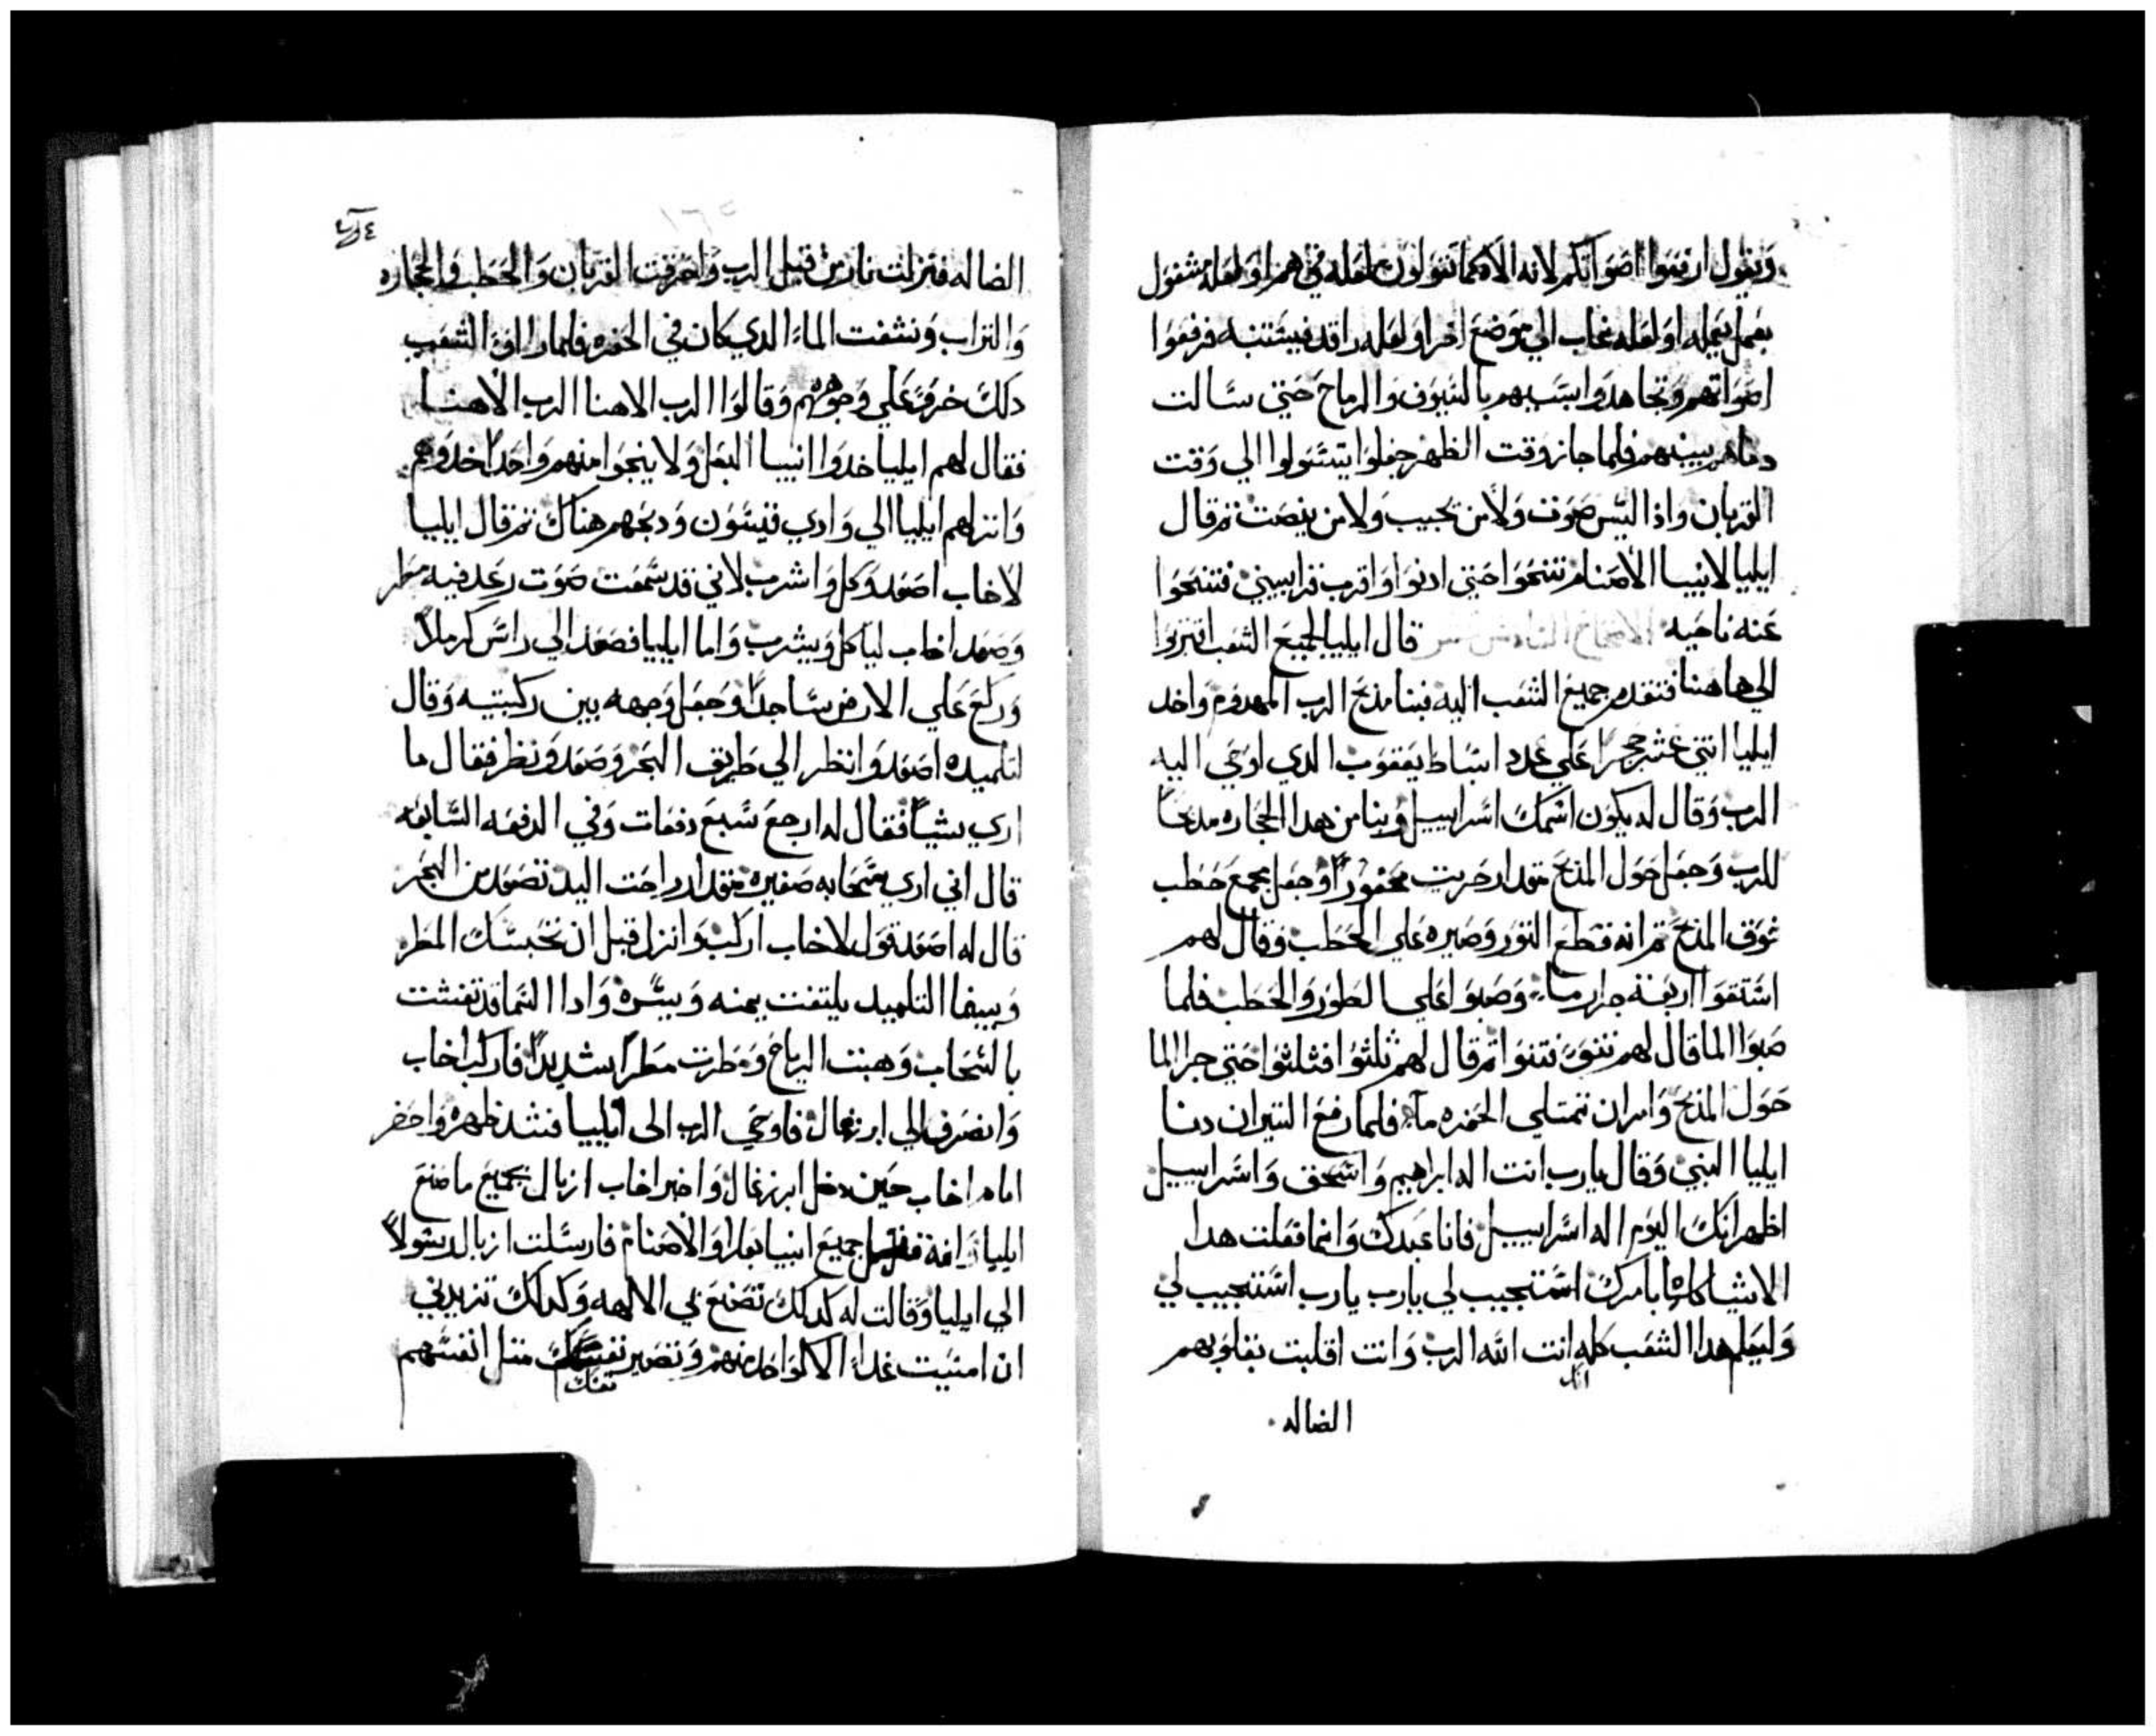 ويقول ارفعوا اصواتكم لانه الاه كما تقولون لعله في هم او لعله مشغول
بعمل يعمله او لعله غاب الي موضع اخر او لعله راقد فيستنبه فرفعوا
اصواتهم وتجاهدوا بينهم بالسيوف والرماح حتي سالت
دماهم بينهم فلما جاز وقت الظهر جعلوا يتسولوا الي وقت
القربان واذا ليس صوت ولا من يجيب ولا من ينصت ثم قال
ايليا لانبيا الاصنام تنحوا حتي ادنوا واقرب قرابيني فتنحوا
عنه ناحيه الاصحاح السادس عشر قال ايليا لجميع الشعب اقتربوا
الي هاهنا فتقدم جميع الشعب اليه فبنا مذبح الرب المهدوم واخد
ايليا اثني عشر حجرا علي عدد اسباط يعقوب الدي اوحي اليه
الرب وقال له يكون اسمك اسراييل وبنا من هدا الحجاره مدبحا
للرب وجعل حول المذبح مقدار حربت محفورا وجعل يجمع حطب
فوق المذبح ثم انه قطع الثور وصيره علي الحطب وقال لهم
استقوا اربعة جرار ماء وصبوا علي الطور والحطب فلما
صبوا الما قال لهم تنوا فتنوا ثم قال لهم ثلثوا فثلثوا حتي جرا الما
حول المذبح وامر ان تمتلي الحفره مآء فلما رفع النيران دنا
ايليا النبي وقال يارب انت اله ابراهيم واسحق واسراييل
اظهر انك اليوم اله اسراييل فانا عبدك وانما فعلت هدا
الاشيا كلها بامرك استجيب لي يارب يارب استجيب لي
وليعلم هدا الشعب كله انت الله الرب وانت اقلبت بقلوبهم
انك
الضاله
الضاله فنزلت نار من قبل الرب واحرقت القربان والحطب والحجاره
والتراب ونشفت الماء الدي كان في الحفره فلما راوا الشعب
دلك خروا علي وجوههم وقالوا الرب الاهنا الرب الاهنا
فقال لهم ايليا خدوا انبيا البعل ولا ينجوا منهم واحدا خدوهم
وانزلهم ايليا الي وادي قيسون ودبحهم هناك ثم قال ايليا
لاخاب اصعد وكل واشرب لاني قد سمعت صوت رعد فيه مطر
وصعد اخاب لياكل ويشرب واما ايليا فصعد الي راس كرملا
وركع علي الارض ساجدا وجعل وجهه بين ركبتيه وقال
لتلميده اصعد وانظر الي طريق البحر وصعد ونظر فقال ما
اري شياً فقال له ارجع سبع دفعات وفي الدفعه السابعه
قال اني اري سحابه صغيره مقدار راحت اليد تصعد من البحر
قال له اصعد قول لاخاب اركب وانزل قبل ان تحبسك المطر
وبينما التلميد يلتفت يمنه ويسره وادا السما قد تغشت
بالسحاب وهبت الرياح ومطرت مطرا شديدا فاركب اخاب
وانصرف الي ايزرعال فاوحي الرب الى ايليا فشد ظهره واحضر
امام اخاب حين دخل ايزرعال واخبر اخاب ازبال بجميع ما صنع
ايليا وانه قتل جميع انبيا بعلا والاصنام فارسلت ازبال رسولاً
الي ايليا وقالت له كدلك تصنع بي الالهه وكدلك تزيدني
ان امسيت غداً الا كواحد منهم وتصير نفسك مثل انفسهم
نفسك